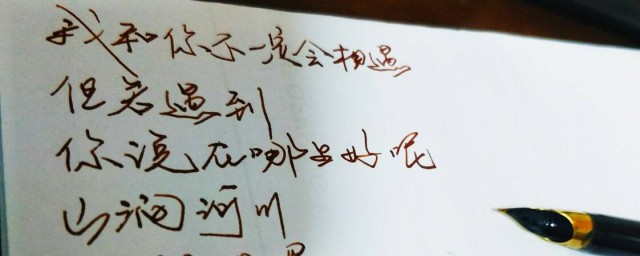 我和你不一定会相遇
但若遇到
你说在哪里好呢
山涧河川